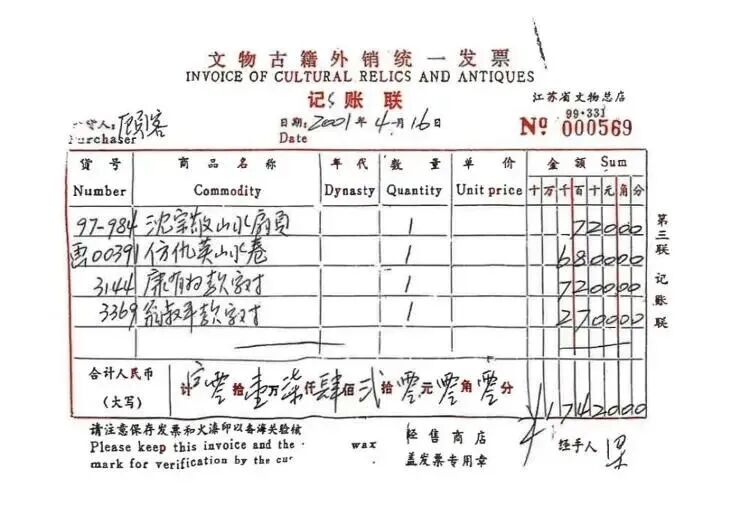 文物古籍外销统一发票
INVOICE OF CULTURAL RELICS AND ANTIQUES
记账联
江苏省文物总店
99·331
Nº 000569
货人: 顾客
Purchaser
日期: 2001年4月16日
Date
货号 商品名称 年代 数量 单价 金额 Sum
Number Commodity Dynasty Quantity Unit price 十万千百十元角分
97-984 沈宗敬山水扇页 1 72000
00391 仿仇英山水卷 1 680000
3144 康有为款字对 1 720000
3369 翁叔平款字对 1 270000
合计人民币
(大写)
计 零拾壹万柒仟肆佰贰拾零元零角零分
¥1742000
请注意保存发票和火漆印以备海关验核
Please keep this invoice and the wax
mark for verification by the cu
经售商店
盖发票专用章
经手人 梁
第三联 记账联